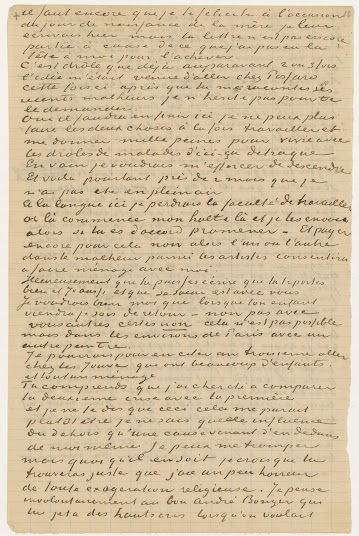 il faut encore que je te félicite à l'occasion
du jour de naissance de la mère je leur
écrivais hier mais la lettre n'est pas encore
partie à cause de ce que j'ai pas eu la
tête à moi pour l'achever
C'est drôle que déjà auparavant 2 ou 3 fois
l'idée m'était venue d'aller chez Pissaro
cette fois ci après que tu m'as raconté ses
récents malheurs je n'hésite pas pour te
le demander
Oui il faudra en finir ici je ne peux plus
faire les deux choses à la fois travailler et
me donner mille peines pour vivre avec
les drôles de malades d'ici ça détraque
En vain je voudrais m'efforcer de descendre
Et voila pourtant près de 2 mois que je
n'ai pas été en plein air
A la longue ici je perdrais la faculté de travailler
or là commence mon halte là et je les envoie
alors si tu es d'accord promener – Et payer
encore pour cela non alors l'un ou l'autre
dans le malheur parmi les artistes consentira
à faire ménage avec moi
Heureusement que tu puisses écrire que tu te portes
bien et Jo aussi et que sa soeur est avec vous
Je voudrais bien moi que lorsque ton enfant
viendra je sois de retour – non pas avec
vous autres certes non cela n'est pas possible
mais dans les environs de Paris avec un
autre peintre
Je pourrais pour en citer un troisième aller
chez les Jouve qui ont beaucoup d'enfants
et tout un ménage
Tu comprends que j'ai cherché à comparer
la deuxième crise avec la première
et je ne te dis que ceci cela me paraît
plutôt être je ne sais quelle influence
du dehors qu'une cause venant d'en dedans
de moi même Je peux me tromper
mais quoi qu'il en soit je crois que tu
trouveras juste que j'aie un peu horreur
de toute exagération religieuse. Je pense
involontairement au bon André Bonger qui
lui jeta des hauts cris lorsqu'on voulait